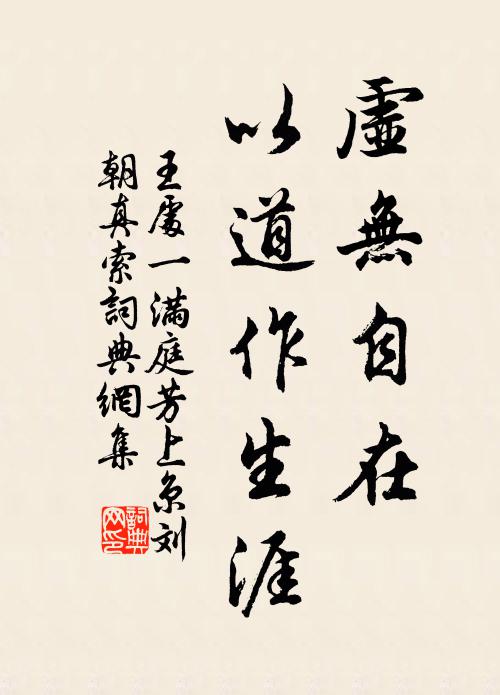 虛無自在
以道作生涯
王處一滿庭芳上京刘
朝真索詞典網集
詞典网印